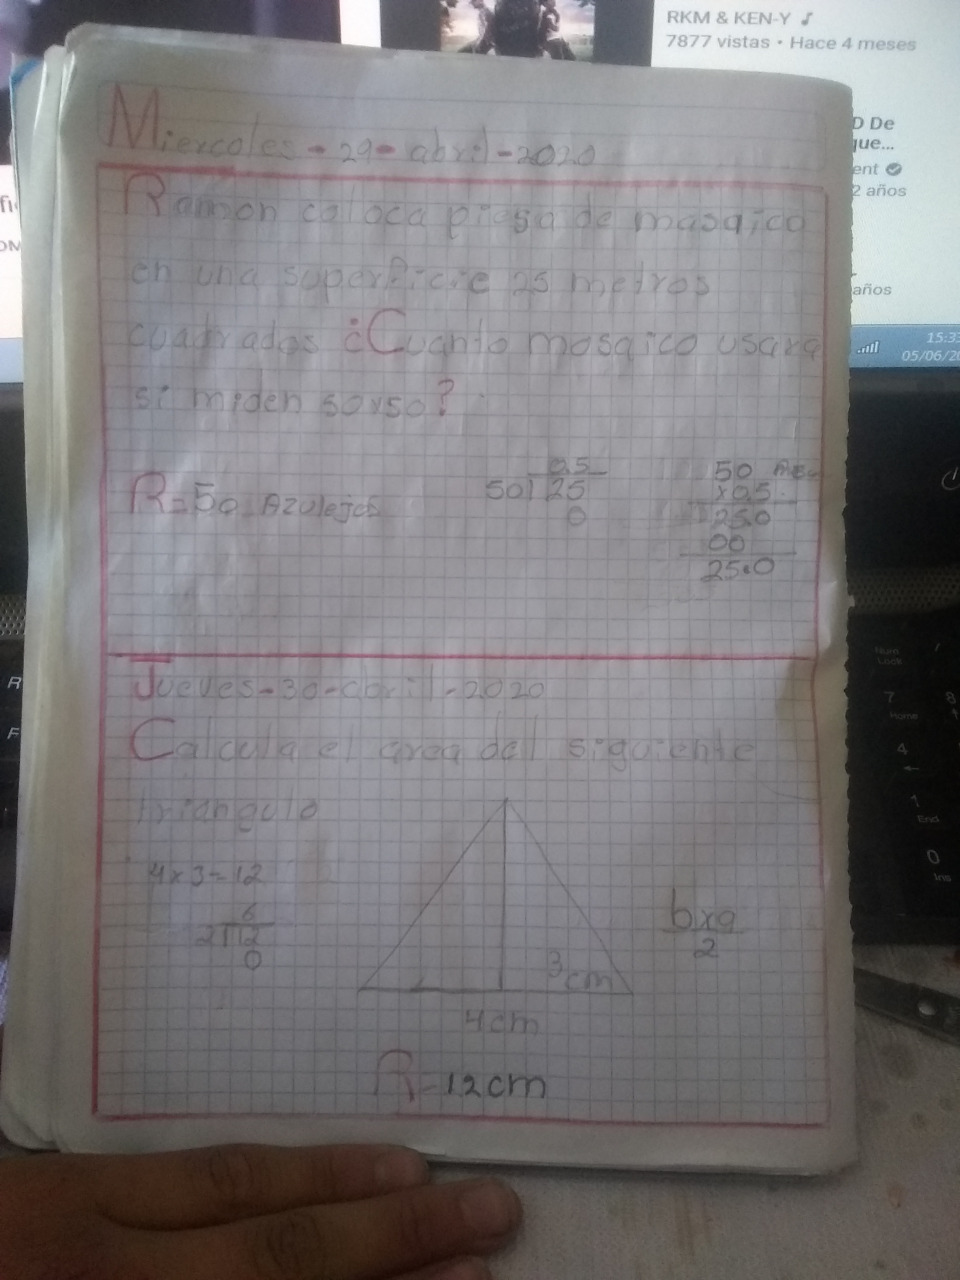 RKM & KEN-Y ♪
7877 vistas • Hace 4 meses
D De
que...
ent
2 años
años
15:33
05/06/20
Miercoles-29-abril-2020
Ramon coloca piesa de masaico
en una superficie 25 metros
cuadrados ¿Cuanto mosaico usara
si miden 50x50?
R=50 Azulejos
0.5
50 25
0
50
x0.5
250
00
25.0
Jueves-30-abril-2020
Calcula el area del siguiente
triangulo
4x3=12
6
2 12
0
3cm
4cm
bxa
2
R=12cm
Num
Lock
7
8
Home
4
←
1
End
0
Ins
R
F